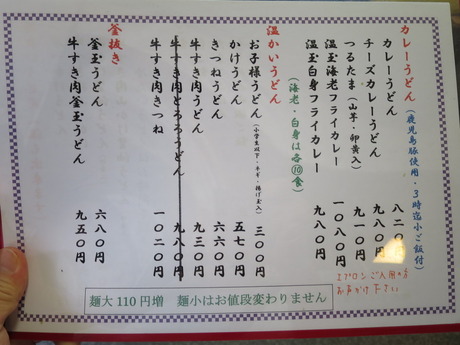 カレーうどん(鹿児島豚使用・3時迄小ご飯付)
カレーうどん 八二〇
チーズカレーうどん 九八〇円
つるたま(山芋・卵黄入) 九一〇円
温玉海老フライカレー 一〇八〇円
温玉白身フライカレー 九八〇円
(海老・白身は各⑩食)
エプロンご入用の方
お声かけ下さい
温かいうどん
お子様うどん(小学生以下・ネギ・揚げ玉入) 三〇〇円
かけうどん 五七〇円
きつねうどん 六六〇円
牛すき肉うどん 九三〇円
牛すき肉とろろうどん 九八〇円
牛すき肉きつね 一〇二〇円
釜抜き
釜玉うどん 六八〇円
牛すき肉釜玉うどん 九五〇円
麺大110円増 麺小はお値段変わりません